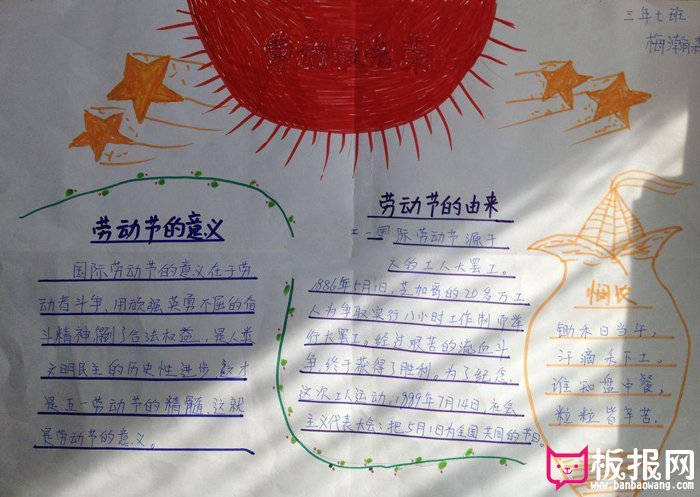 三年七班
梅瀚
劳动最光荣
劳动节的意义
国际劳动节的意义在于劳
动者斗争、用顽强英勇不屈的奋
斗精神了合法权益、是人类
文明民主的历史性进步,这才
是五一劳动节的精髓、这就
是劳动节的意义。
劳动节的由来
一国际劳动节源于
天的工人大罢工。
1886年5月1日,芝加哥的20多万工
人为争取实行八小时工作制而举
行大罢工。经过艰苦的流血斗
争终于获得了胜利。为了纪念
这次工人运动,1999年7月14日,社会
主义代表大会:把5月1日为全国共同的节日。
悯农
锄禾日当午,
汗滴禾下土。
谁知盘中餐,
粒粒皆辛苦.
板报网
www.banbaowang.com